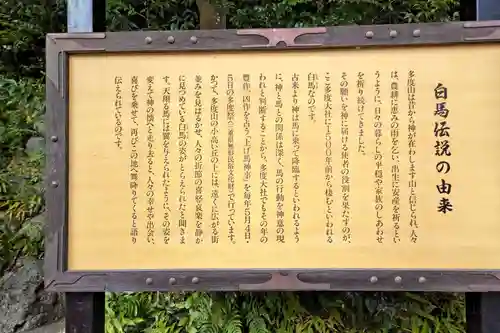 白馬伝説の由来
多度山は昔から神が在わします山と信じられ、人々
は、農耕に恵みの雨を乞い、出生に安産を祈るとい
うように、日々の暮らしの平穏や家族のしあわせ
を祈り続けてきました。
その願いを神に届ける使者の役割を果たすのが、
ここ多度大社に1500年前から棲むといわれる
白馬なのです。
古来より神は馬に乗って降臨するといわれるよう
に、神と馬との関係は深く、馬の行動を神意の現
われと判断することから、多度大社でもその年の
豊作、凶作を占う「上げ馬神事」を毎年5月4日・
5日の多度祭(三重県無形民俗文化財)で行っています。
かつて、多度山の小高い丘の上には、遠くに広がる街
並みを見はるかせ、人々の街節の喜怒哀楽を静か
に見つめている白馬の姿がとらえられたと聞きま
す。天翔る馬には翼を与えられたように、その姿を
変えて神の懐へと走り去ると、人々の幸せや出会い、
喜びを乗せて、再びこの地へ舞降りてくると語り
伝えられているのです。